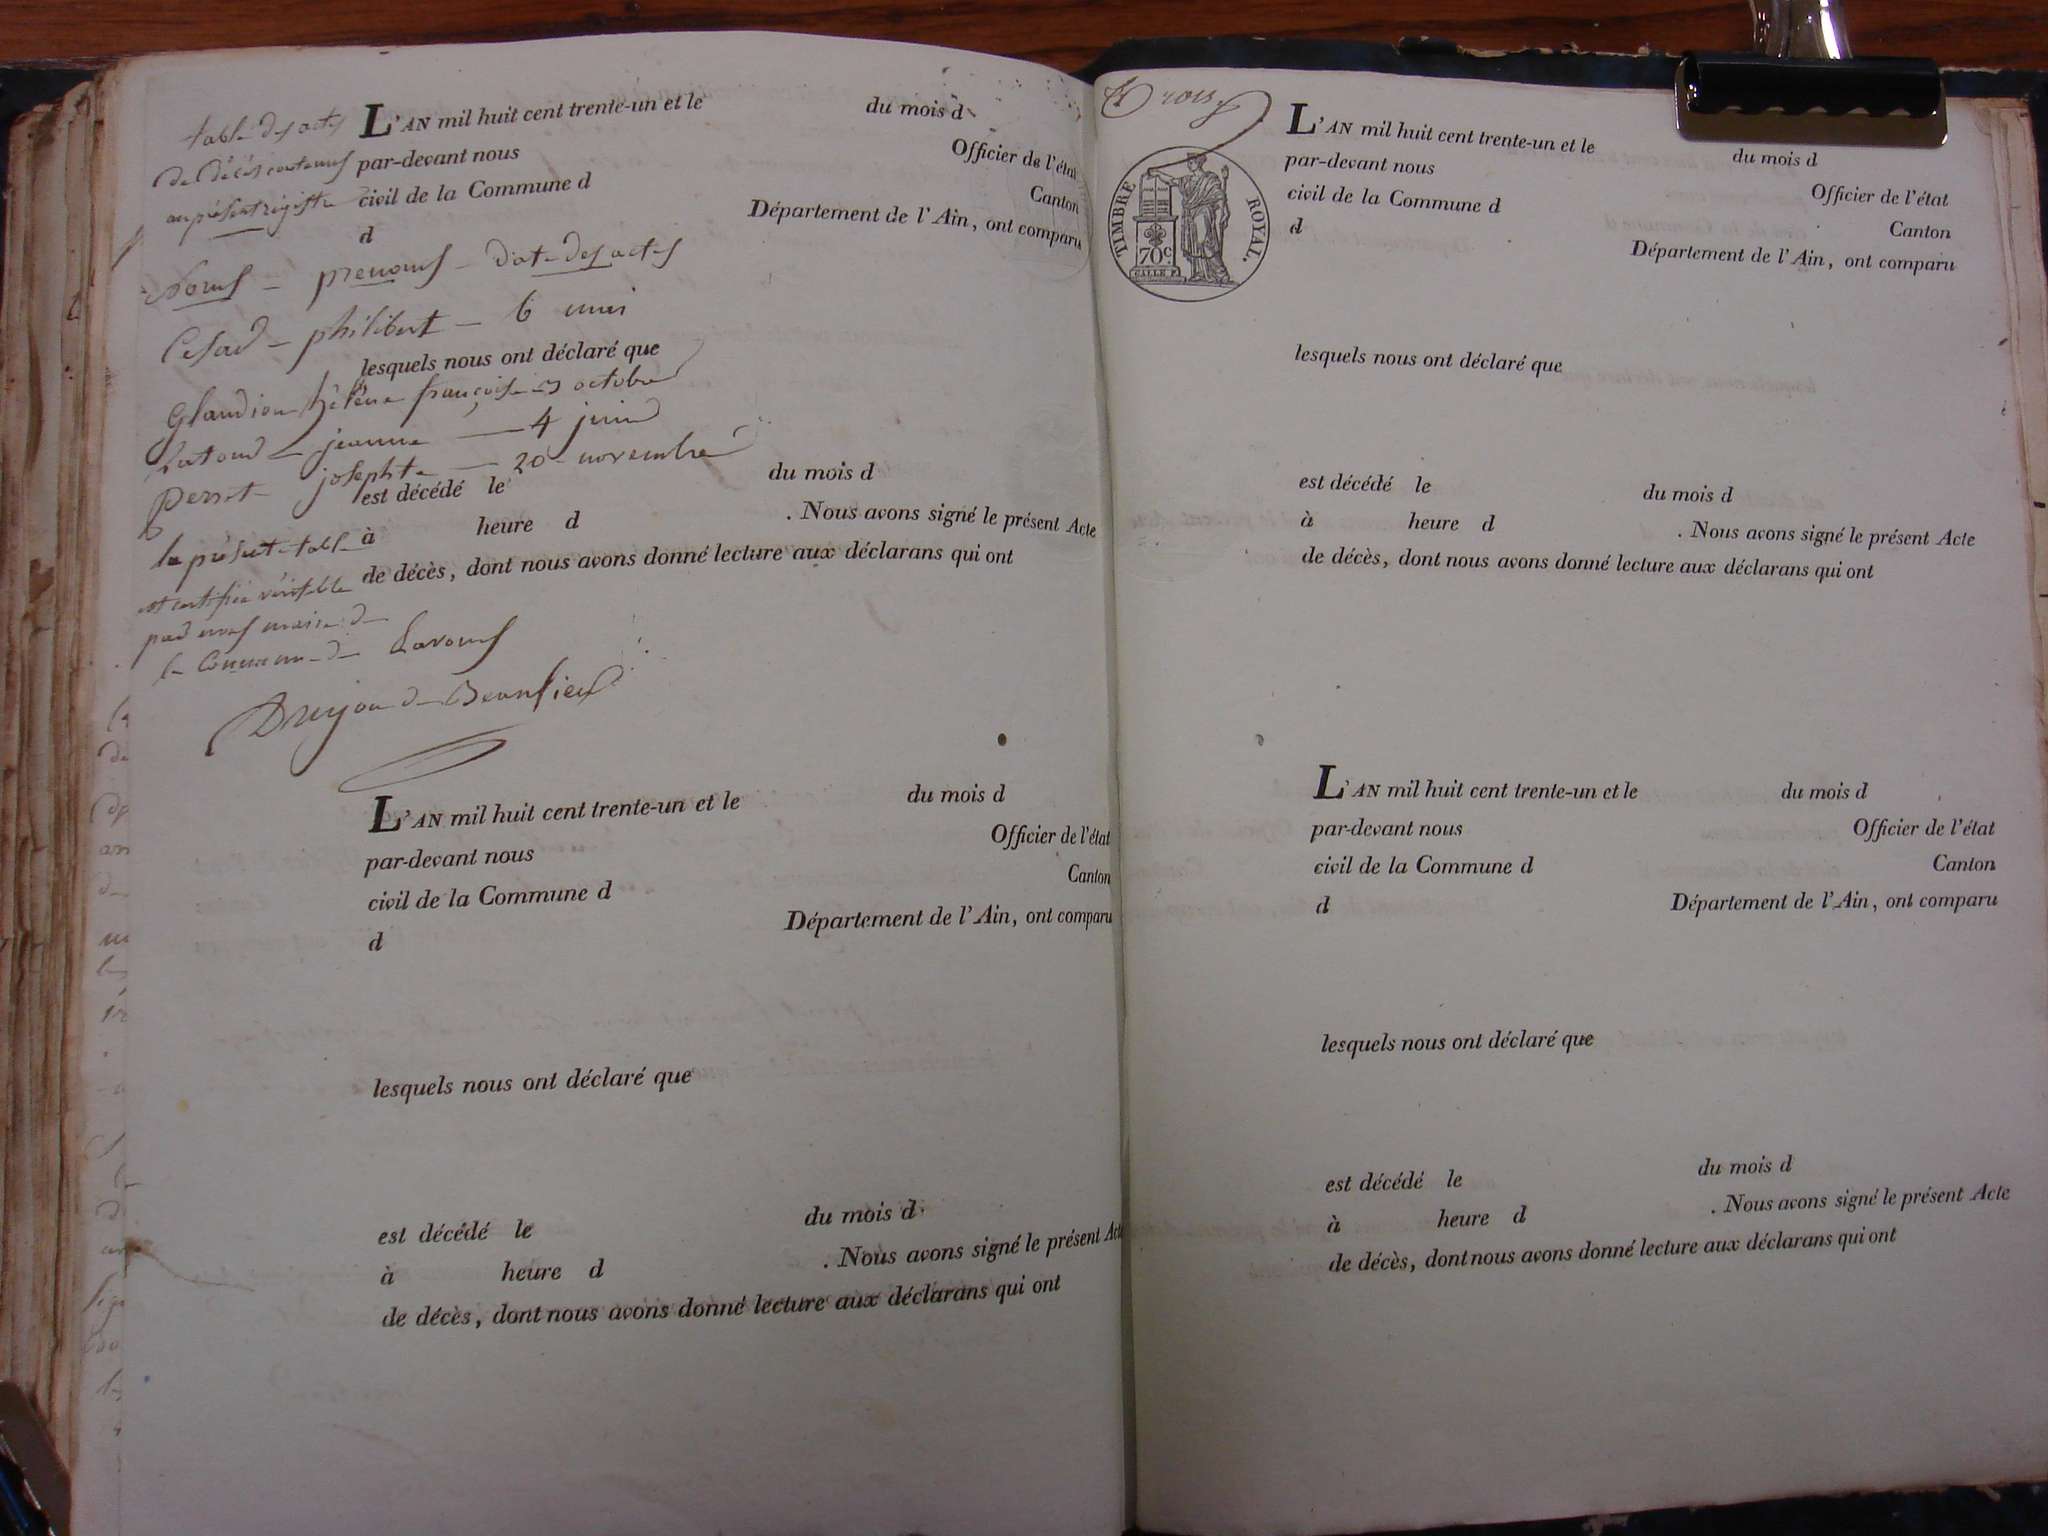 table des actes
de décès contenus
au présent registre
L'AN mil huit cent trente-un et le du mois d
par-devant nous Officier de l'état
civil de la Commune d Canton
d Département de l'Ain, ont comparu
noms - prenoms - date des actes
philibert - 6 mai
lesquels nous ont déclaré que
hélène françoise 3 octobre
jeanne - 4 juin
perret josephte - 20 novembre
est décédé le du mois d
à heure d . Nous avons signé le présent Acte
de décès, dont nous avons donné lecture aux déclarans qui ont
la présente table
est certifiée véritable
par nous maire de
la Commune de Lavours
Drujon de Beaulieu
L'AN mil huit cent trente-un et le du mois d
par-devant nous Officier de l'état
civil de la Commune d Canton
d Département de l'Ain, ont comparu
lesquels nous ont déclaré que
est décédé le du mois d
à heure d . Nous avons signé le présent Acte
de décès, dont nous avons donné lecture aux déclarans qui ont
trois
TIMBRE ROYAL.
70 c.
L'AN mil huit cent trente-un et le du mois d
par-devant nous Officier de l'état
civil de la Commune d Canton
d Département de l'Ain, ont comparu
lesquels nous ont déclaré que
est décédé le du mois d
à heure d . Nous avons signé le présent Acte
de décès, dont nous avons donné lecture aux déclarans qui ont
L'AN mil huit cent trente-un et le du mois d
par-devant nous Officier de l'état
civil de la Commune d Canton
d Département de l'Ain, ont comparu
lesquels nous ont déclaré que
est décédé le du mois d
à heure d . Nous avons signé le présent Acte
de décès, dont nous avons donné lecture aux déclarans qui ont